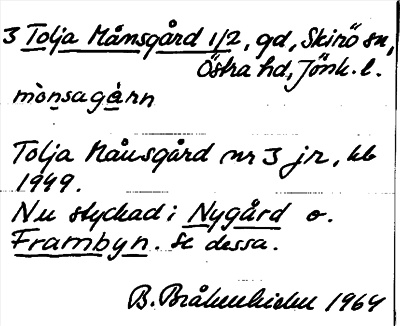 3 Tolja Månsgård 1/2, gd, Skirö sn,
Östra hd, Jönk. l.
mònsagàrn
Tolja Månsgård nr 3 jr, kb
1949.
Nu styckad i Nygård o.
Frambyn. Se dessa.
B. 1964